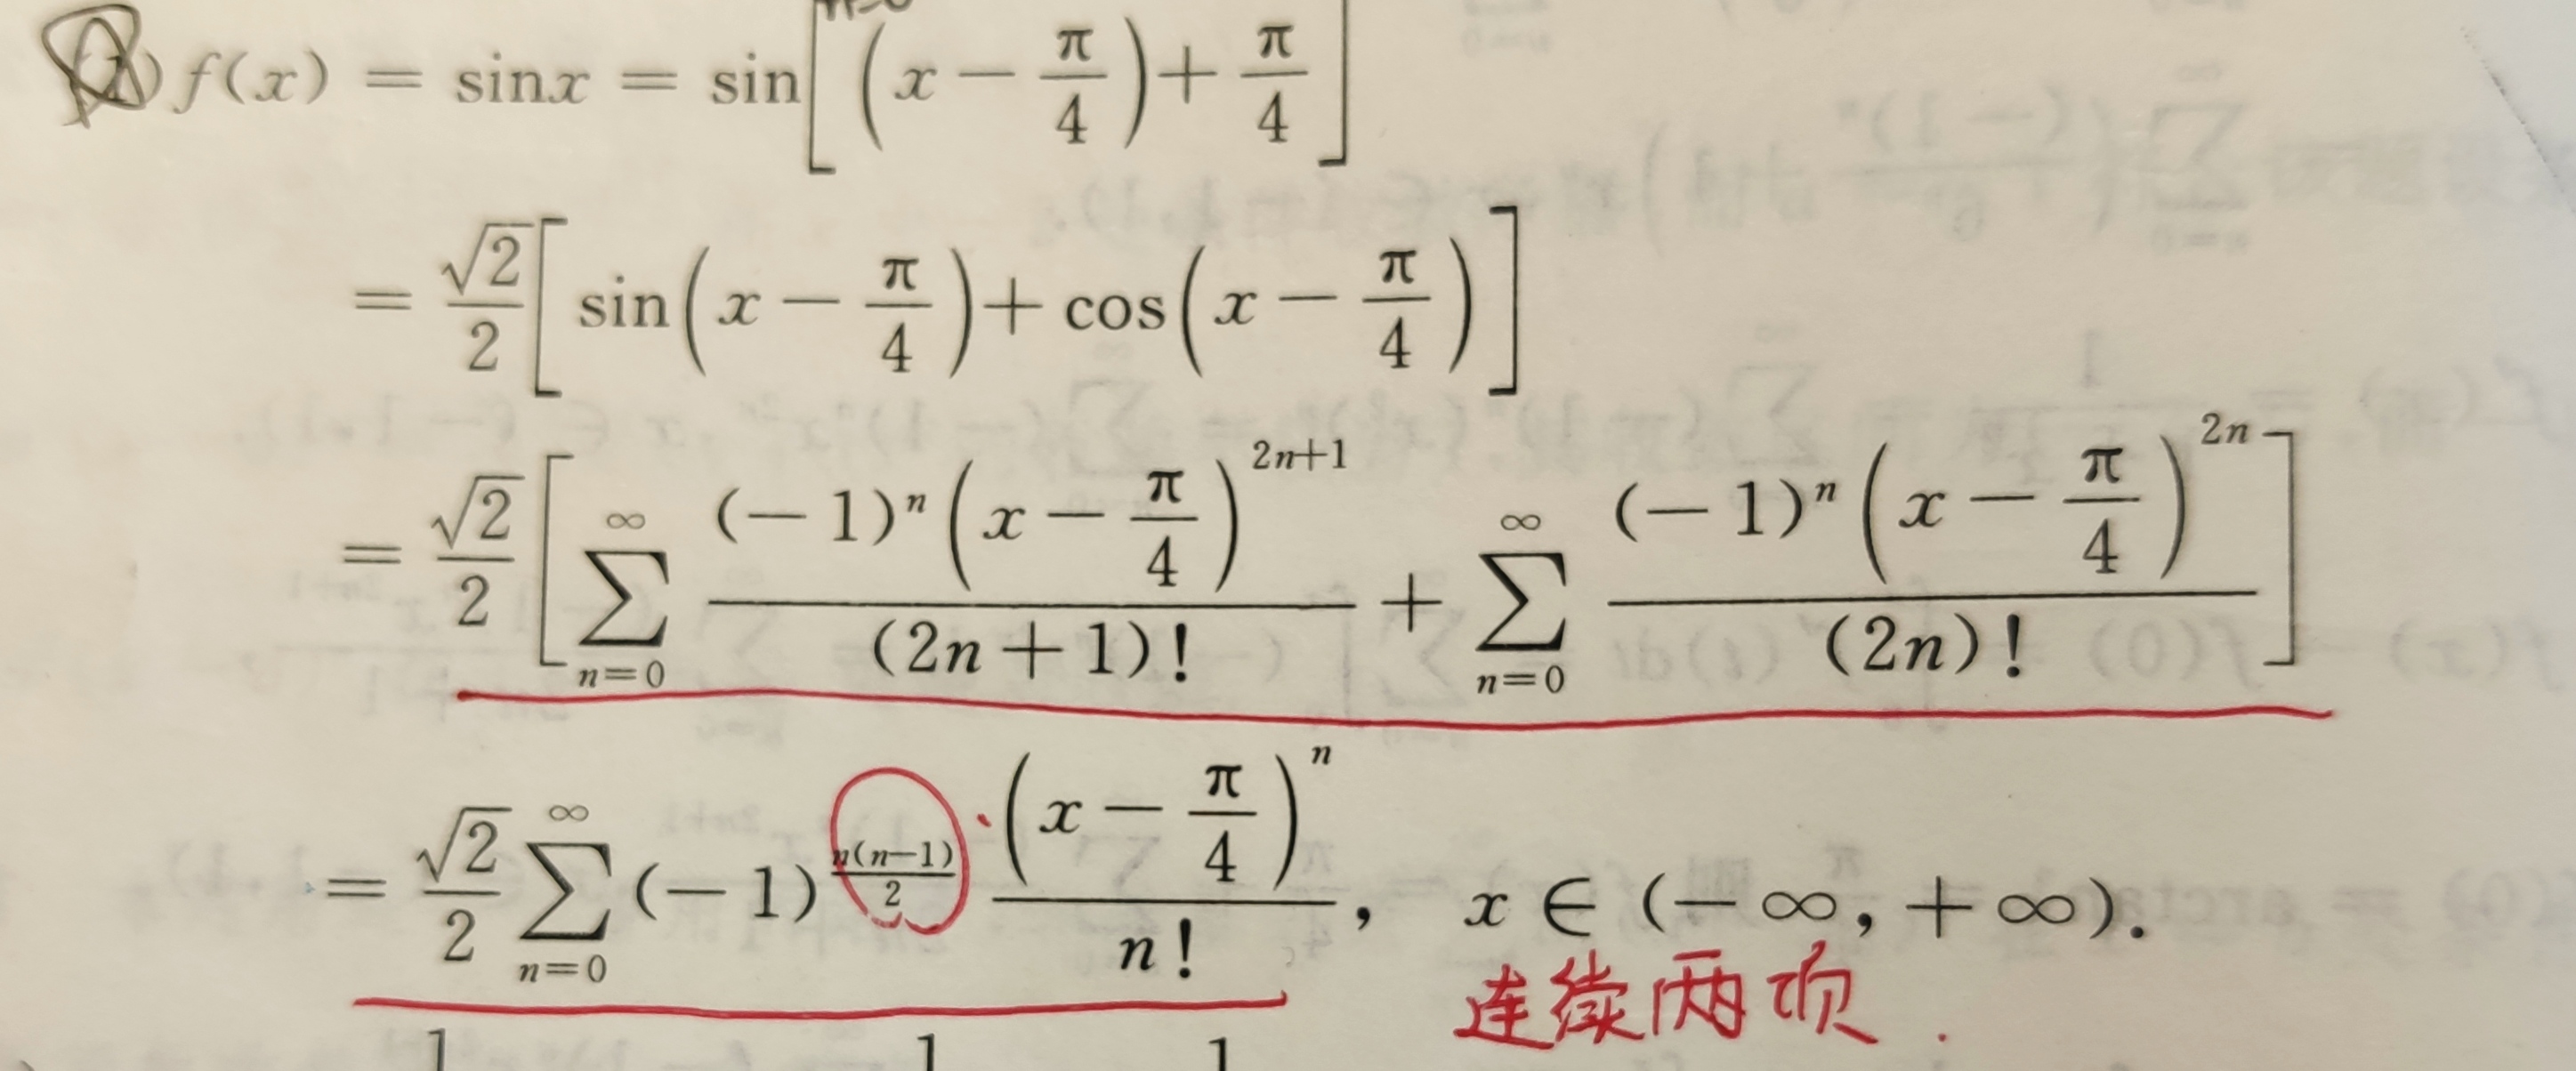 f(x) = sinx = sin[(x − π/4) + π/4]
= √2/2 [sin(x − π/4) + cos(x − π/4)]
= √2/2 [∑_{n=0}^{∞} (−1)^n (x − π/4)^{2n+1} / (2n+1)! + ∑_{n=0}^{∞} (−1)^n (x − π/4)^{2n} / (2n)!]
= √2/2 ∑_{n=0}^{∞} (−1)^{n(n−1)/2} · (x − π/4)^n / n!, x ∈ (−∞, +∞).
连续两项.